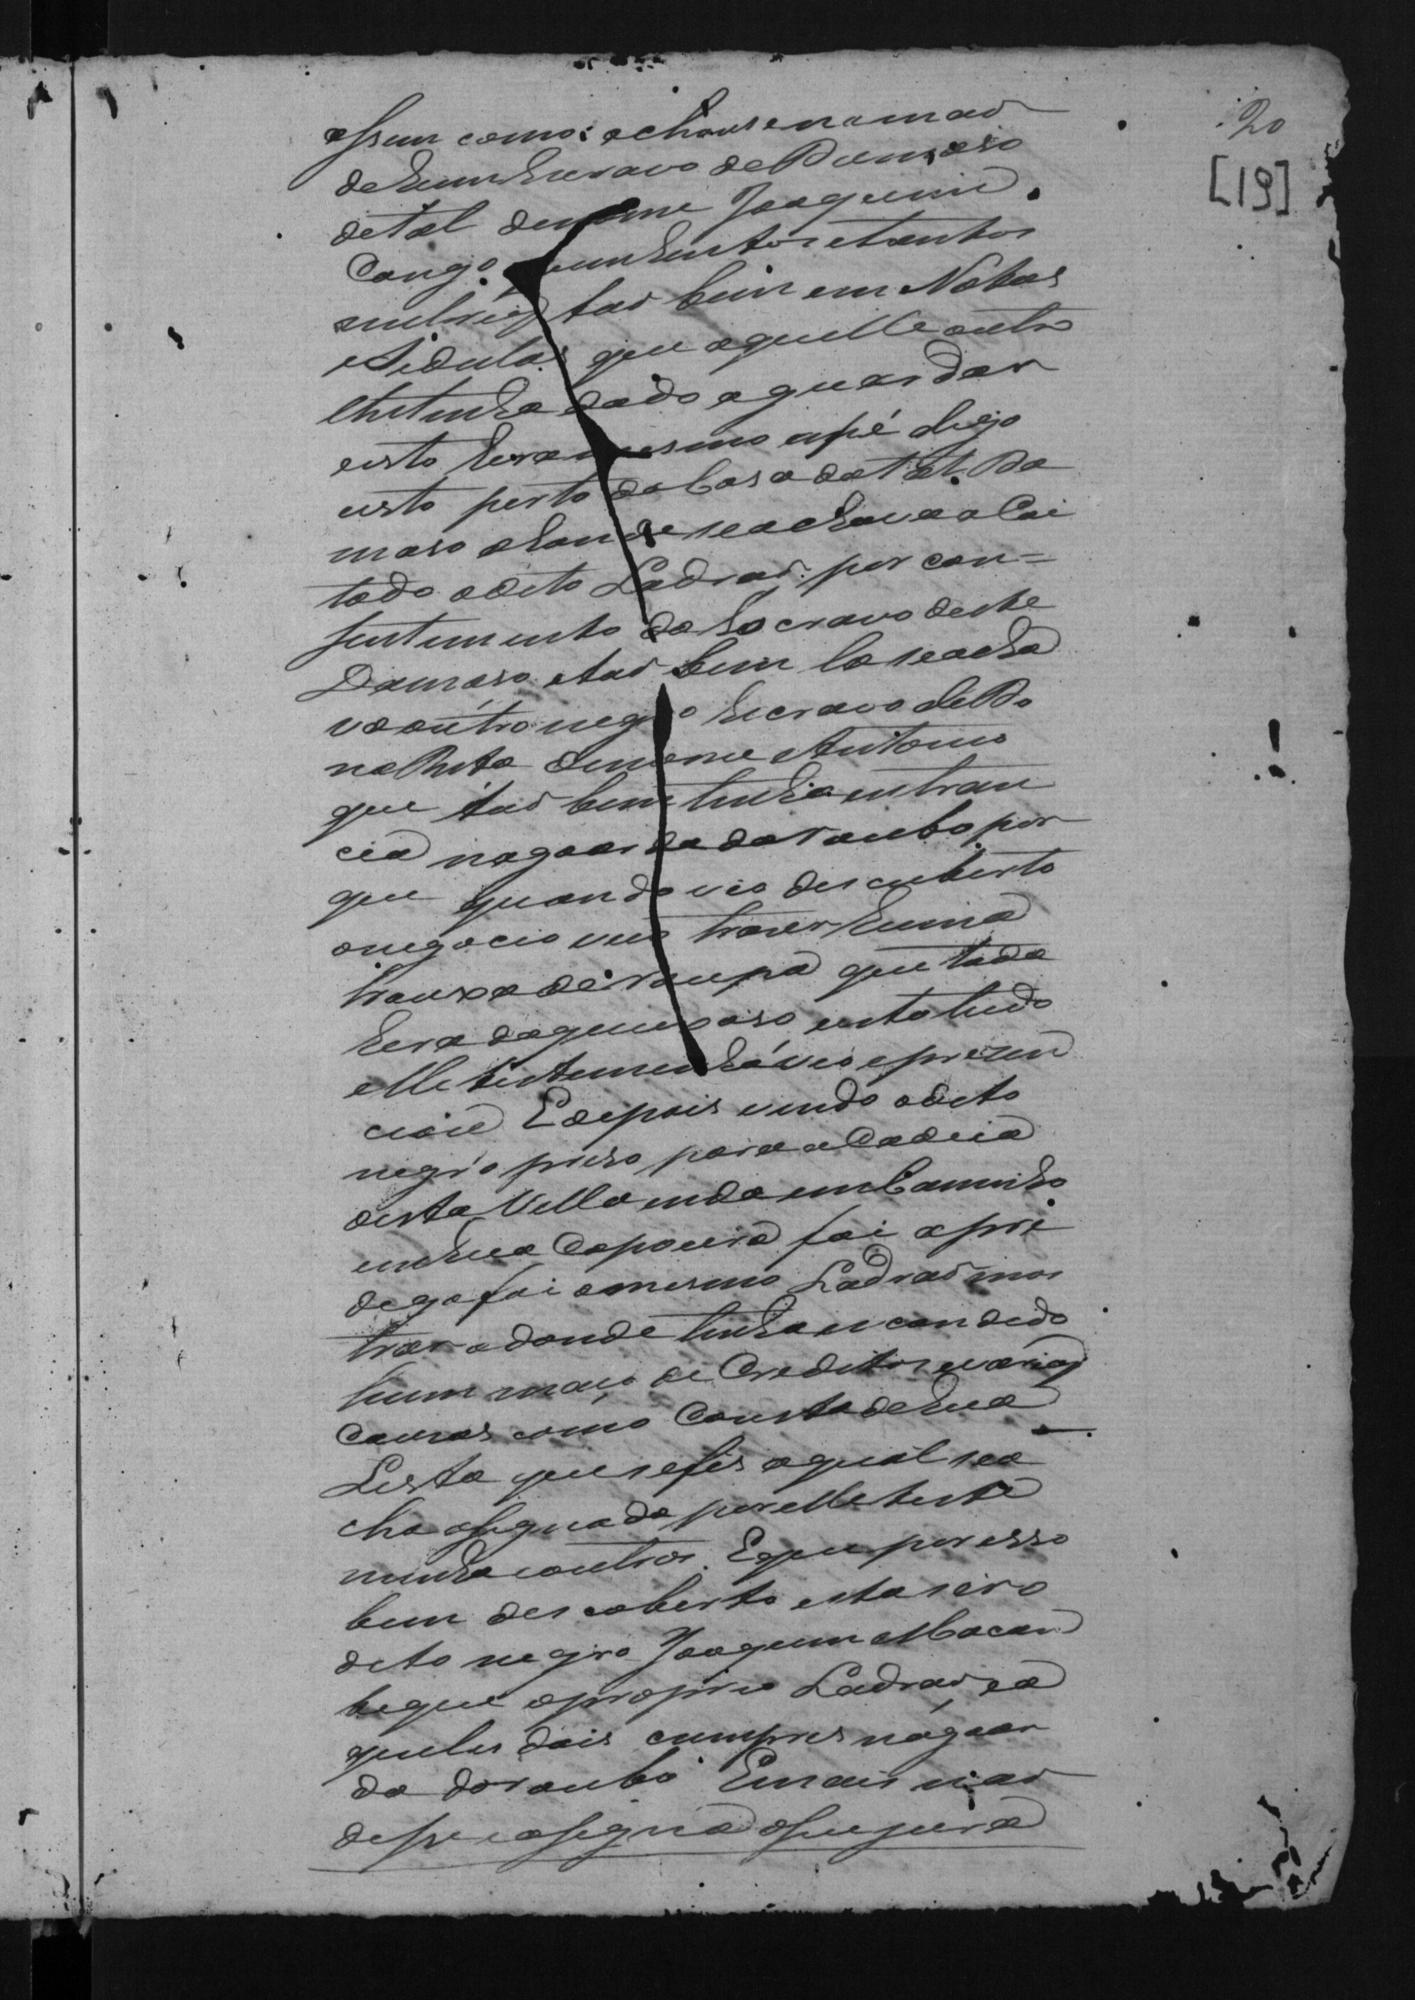 20
[19]
assim como: achouse na mão
de hum Escravo de Damazo
de tal de nome Joaquim
Congo, quinhentos e tantos
mil reis tão bem em Notas
e Sedulas que aquelle outro
lhe tinha dado a guardar
e isto hera mesmo ao pé digo
isto perto da Casa do tal Da
mazo ahonde se achava a Coi
tado o dito Ladrão por con=
sentimento do Escravo deste
Damazo e tão bem la se acha
va outro negro Escravo de Do
na Rita de nome Antonio
que tão bem tinha entran
cia na goarda do roubo por
que quando vio descuberto
o negocio veio trazer huma
trouxa de roupa que toda
hera daquem o so e isto tudo
elle testemunha vio e prezen
ciou E depois vindo o dito
negro prezo para a Cadeia
desta Villa inda em Caminho
em hua Capoeira foi a pri
digo foi o mesmo Ladrão mos
trar adonde tinha escondido
hum maço de Creditos e várias
Couzas como Consta de hua
Lista que se fes a qual se a
cha assignada por elle teste
munha e outros. E que por isso
bem descoberto esta ser o
dito negro Joaquim Mocam
bique o proprio Ladrão e a
queles dois cumpres na goar
da do roubo E mais não
disse e assignou o seu jura